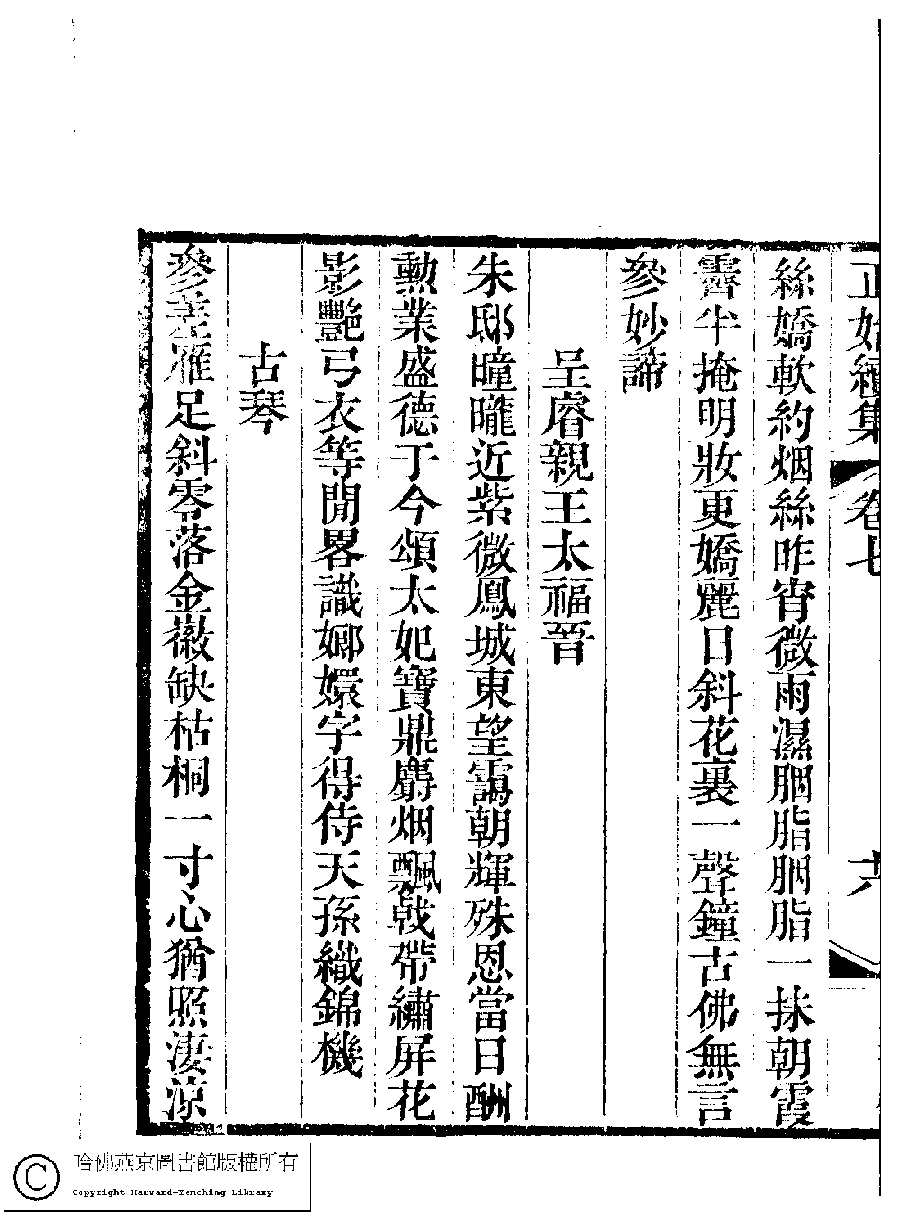 正始續集 卷七 六
絲嬌軟約烟絲昨宵微雨濕胭脂胭脂一抹朝霞
霽半掩明妝更嬌麗日斜花裏一聲鐘古佛無言
參妙諦
呈睿親王太福晉
朱邸曈曨近紫微鳳城東望靄朝輝殊恩當日酬
勳業盛德于今頌太妃寶鼎麝烟飄戟帶繡屏花
影艷弓衣等閒畧識嫏嬛字得侍天孫織錦機
古琴
參差雁足斜零落金徽缺枯桐一寸心猶照淒涼
哈佛燕京圖書館版權所有
Copyright Harvard-Yenching Library